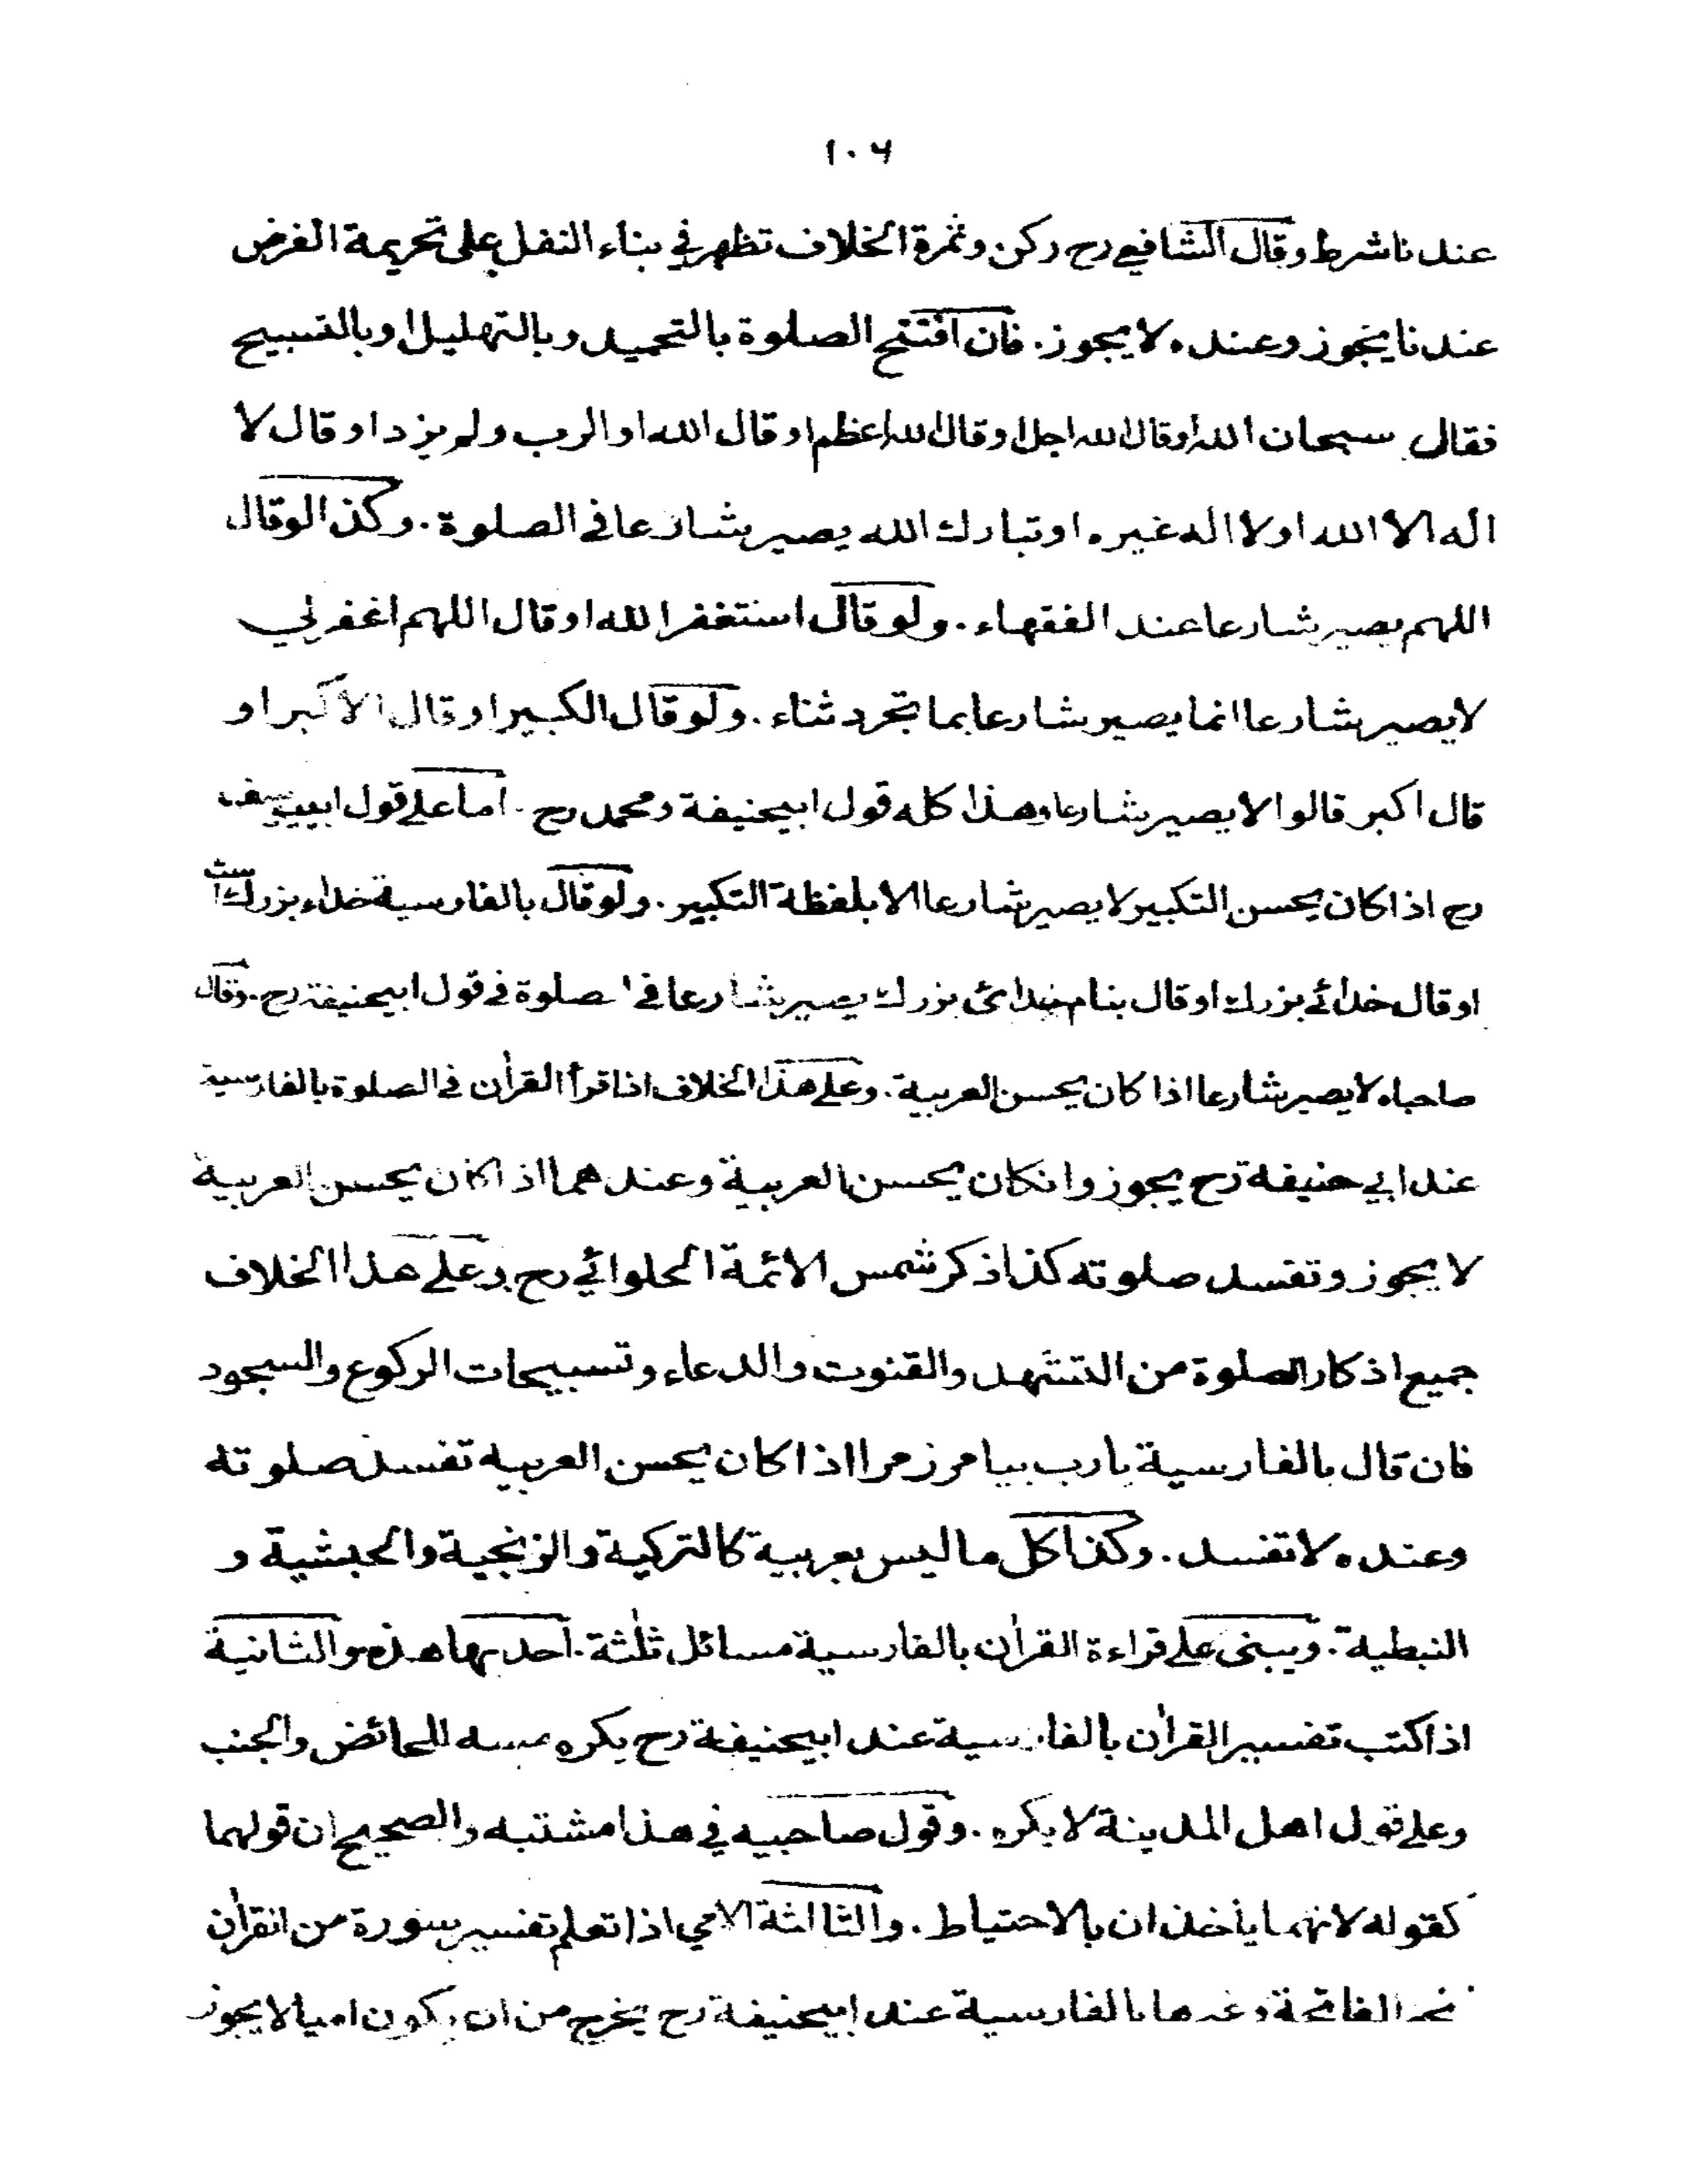 ١٠٦
عندنا شرط وقال الشافعي رح ركن وثمرة الخلاف تظهر في بناء النفل على تحريمة الفرض
عندنا يجوز وعنده لا يجوز. فان افتتح الصلوة بالتحميد وبالتهليل او بالتسبيح
فقال سبحان الله او قال الله اجل او قال الله اعظم او قال الله او الرب ولم يزد او قال لا
اله الا الله او لا اله غيره او تبارك الله يصير شارعا في الصلوة. وكذا لو قال
اللهم يصير شارعا عند الفقهاء. ولو قال استغفر الله او قال اللهم اغفرلي
لا يصير شارعا انما يصير شارعا بما تجرد ثناء. ولو قال الكبير او قال الاكبر او
قال اكبر قالوا لا يصير شارعا وهذا كله قول ابيحنيفة ومحمد رح. اما على قول ابييوسف
رح اذا كان يحسن التكبير لا يصير شارعا الا بلفظة التكبير. ولو قال بالفارسية خداء بزرك است
او قال خدائے بزرك او قال بنام خدائ بزرك يصير شارعا في الصلوة في قول ابيحنيفة رح. وقال
صاحباه لا يصير شارعا اذا كان يحسن العربية. وعلى هذا الخلاف اذا قرأ القرأن في الصلوة بالفارسية
عند ابي حنيفة رح يجوز وانكان يحسن العربية وعندهما اذا كان يحسن العربية
لا يجوز وتفسد صلوته كذا ذكر شمس الائمة الحلوائي رح وعلى هذا الخلاف
جميع اذكار الصلوة من التشهد والقنوت والدعاء وتسبيحات الركوع والسجود
فان قال بالفارسية يارب بيامرز مرا اذا كان يحسن العربيه تفسد صلوته
وعنده لا تفسد. وكذا كل ما ليس بعربية كالتركية والزنجية والحبشية و
النبطية. ويبنى على قراءة القرأن بالفارسية مسائل ثلثة. احديها هذه والثانية
اذا كتب تفسير القرأن بالفارسية عند ابيحنيفة رح يكره مسه للحائض والجنب
وعلى قول اهل المدينة لا يكره. وقول صاحبيه في هذا مشتبه والصحيح ان قولهما
كقوله لانهما ياخذان بالاحتياط. والثالثة الامي اذا تعلم تفسير سورة من القرأن
نحو الفاتحة وغيرها بالفارسية عند ابيحنيفة رح يخرج من ان يكون اميا لا يجوز